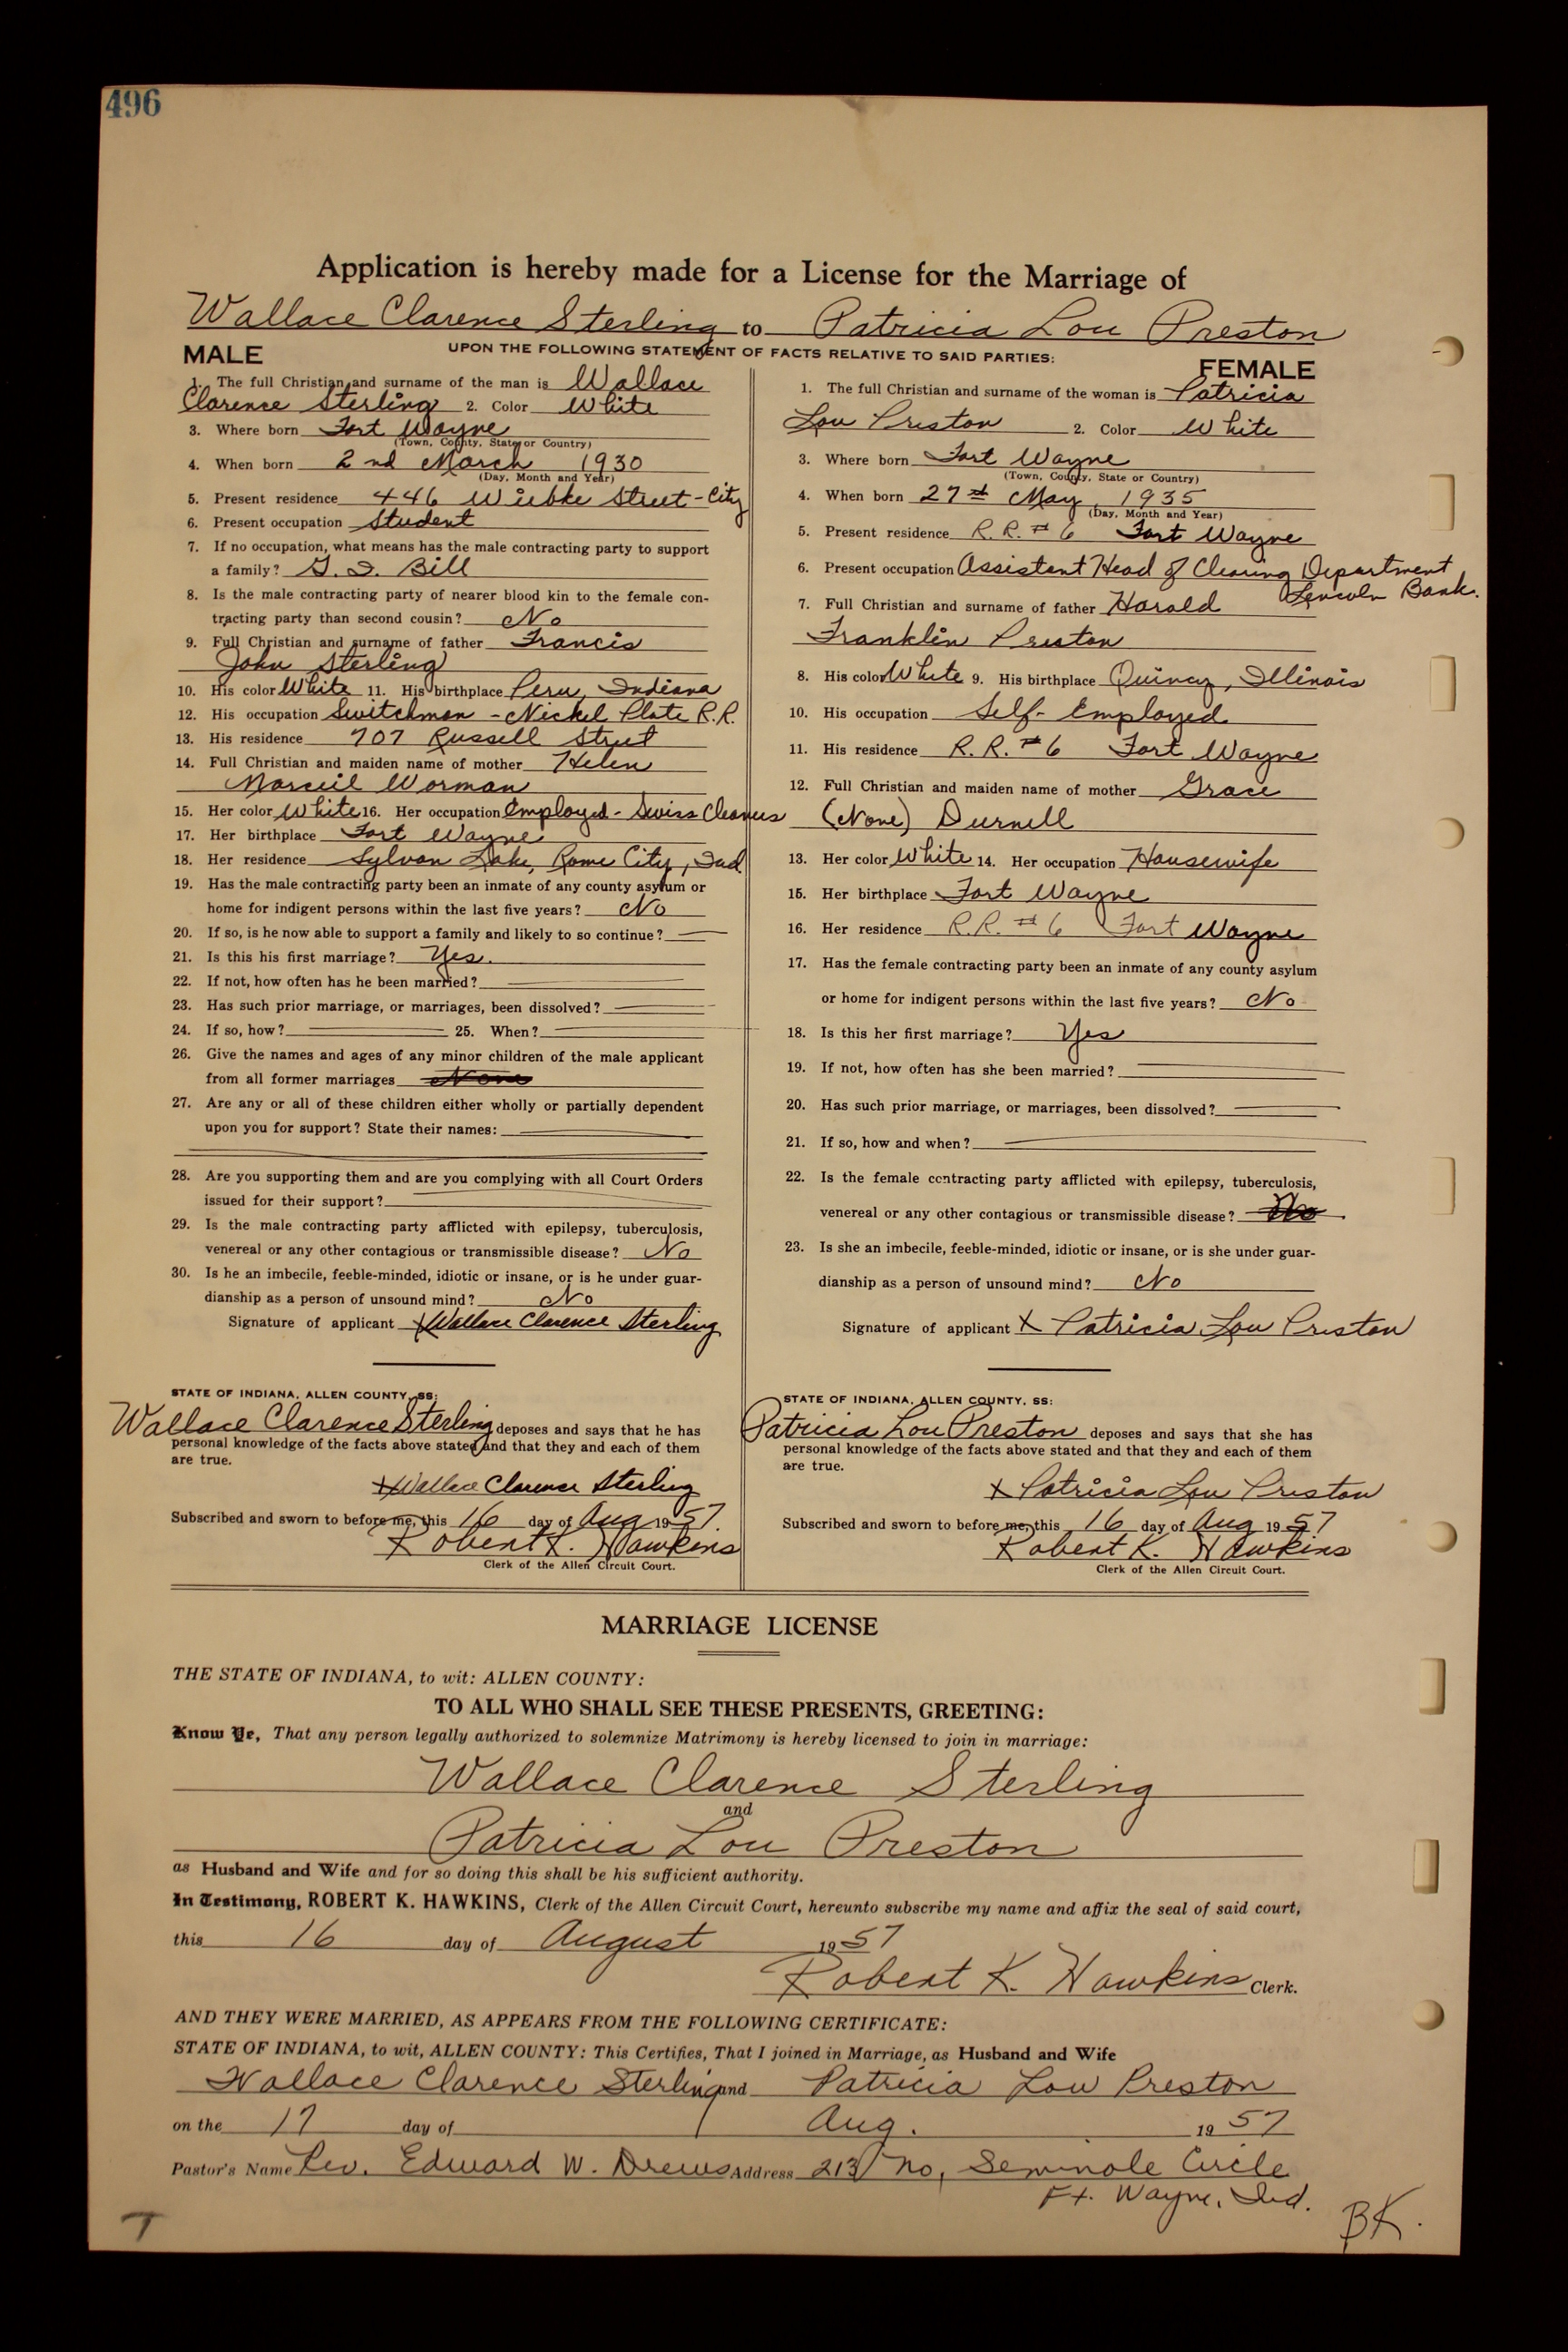 496
Application is hereby made for a License for the Marriage of
Wallace Clarence Sterling to Patricia Lou Preston
UPON THE FOLLOWING STATEMENT OF FACTS RELATIVE TO SAID PARTIES:
MALE
1. The full Christian and surname of the man is Wallace
Clarence Sterling 2. Color White
3. Where born Fort Wayne
(Town, County, State or Country)
4. When born 2nd March 1930
(Day, Month and Year)
5. Present residence 446 Wiebke Street - City
6. Present occupation Student
7. If no occupation, what means has the male contracting party to support
a family? G. I. Bill
8. Is the male contracting party of nearer blood kin to the female con-
tracting party than second cousin? No
9. Full Christian and surname of father Francis
John Sterling
10. His color White 11. His birthplace Peru, Indiana
12. His occupation Switchman - Nickel Plate R.R.
13. His residence 707 Russell Street
14. Full Christian and maiden name of mother Helen
Marceil Worman
15. Her color White 16. Her occupation Employed - Swiss Cleaners
17. Her birthplace Fort Wayne
18. Her residence Sylvan Lake, Rome City, Ind
19. Has the male contracting party been an inmate of any county asylum or
home for indigent persons within the last five years? No
20. If so, is he now able to support a family and likely to so continue?
21. Is this his first marriage? Yes.
22. If not, how often has he been married?
23. Has such prior marriage, or marriages, been dissolved?
24. If so, how? 25. When?
26. Give the names and ages of any minor children of the male applicant
from all former marriages None
27. Are any or all of these children either wholly or partially dependent
upon you for support? State their names:
28. Are you supporting them and are you complying with all Court Orders
issued for their support?
29. Is the male contracting party afflicted with epilepsy, tuberculosis,
venereal or any other contagious or transmissible disease? No
30. Is he an imbecile, feeble-minded, idiotic or insane, or is he under guar-
dianship as a person of unsound mind? No
Signature of applicant X Wallace Clarence Sterling
STATE OF INDIANA, ALLEN COUNTY, SS:
Wallace Clarence Sterling deposes and says that he has
personal knowledge of the facts above stated and that they and each of them
are true.
X Wallace Clarence Sterling
Subscribed and sworn to before me, this 16 day of Aug 1957.
Robert K. Hawkins
Clerk of the Allen Circuit Court.
FEMALE
1. The full Christian and surname of the woman is Patricia
Lou Preston 2. Color White
3. Where born Fort Wayne
(Town, County, State or Country)
4. When born 27th May 1935
(Day, Month and Year)
5. Present residence R.R. #6 Fort Wayne
6. Present occupation Assistant Head of Clearing Department
Lincoln Bank.
7. Full Christian and surname of father Harold
Franklin Preston
8. His color White 9. His birthplace Quincy, Illinois
10. His occupation Self-Employed
11. His residence R.R. #6 Fort Wayne
12. Full Christian and maiden name of mother Grace
(None) Durnell
13. Her color White 14. Her occupation Housewife
15. Her birthplace Fort Wayne
16. Her residence R.R. #6 Fort Wayne
17. Has the female contracting party been an inmate of any county asylum
or home for indigent persons within the last five years? No
18. Is this her first marriage? Yes
19. If not, how often has she been married?
20. Has such prior marriage, or marriages, been dissolved?
21. If so, how and when?
22. Is the female contracting party afflicted with epilepsy, tuberculosis,
venereal or any other contagious or transmissible disease? No
23. Is she an imbecile, feeble-minded, idiotic or insane, or is she under guar-
dianship as a person of unsound mind? No
Signature of applicant X Patricia Lou Preston
STATE OF INDIANA, ALLEN COUNTY, SS:
Patricia Lou Preston deposes and says that she has
personal knowledge of the facts above stated and that they and each of them
are true.
X Patricia Lou Preston
Subscribed and sworn to before me, this 16 day of Aug 1957
Robert K. Hawkins
Clerk of the Allen Circuit Court.
MARRIAGE LICENSE
THE STATE OF INDIANA, to wit: ALLEN COUNTY:
TO ALL WHO SHALL SEE THESE PRESENTS, GREETING:
Know Ye, That any person legally authorized to solemnize Matrimony is hereby licensed to join in marriage:
Wallace Clarence Sterling
and
Patricia Lou Preston
as Husband and Wife and for so doing this shall be his sufficient authority.
In Testimony, ROBERT K. HAWKINS, Clerk of the Allen Circuit Court, hereunto subscribe my name and affix the seal of said court,
this 16 day of August 1957
Robert K. Hawkins Clerk.
AND THEY WERE MARRIED, AS APPEARS FROM THE FOLLOWING CERTIFICATE:
STATE OF INDIANA, to wit, ALLEN COUNTY: This Certifies, That I joined in Marriage, as Husband and Wife
Wallace Clarence Sterling and Patricia Lou Preston
on the 17 day of Aug. 1957
Pastor's Name Rev. Edward W. Drews Address 213 No. Seminole Circle
Ft. Wayne, Ind.
T
BK.